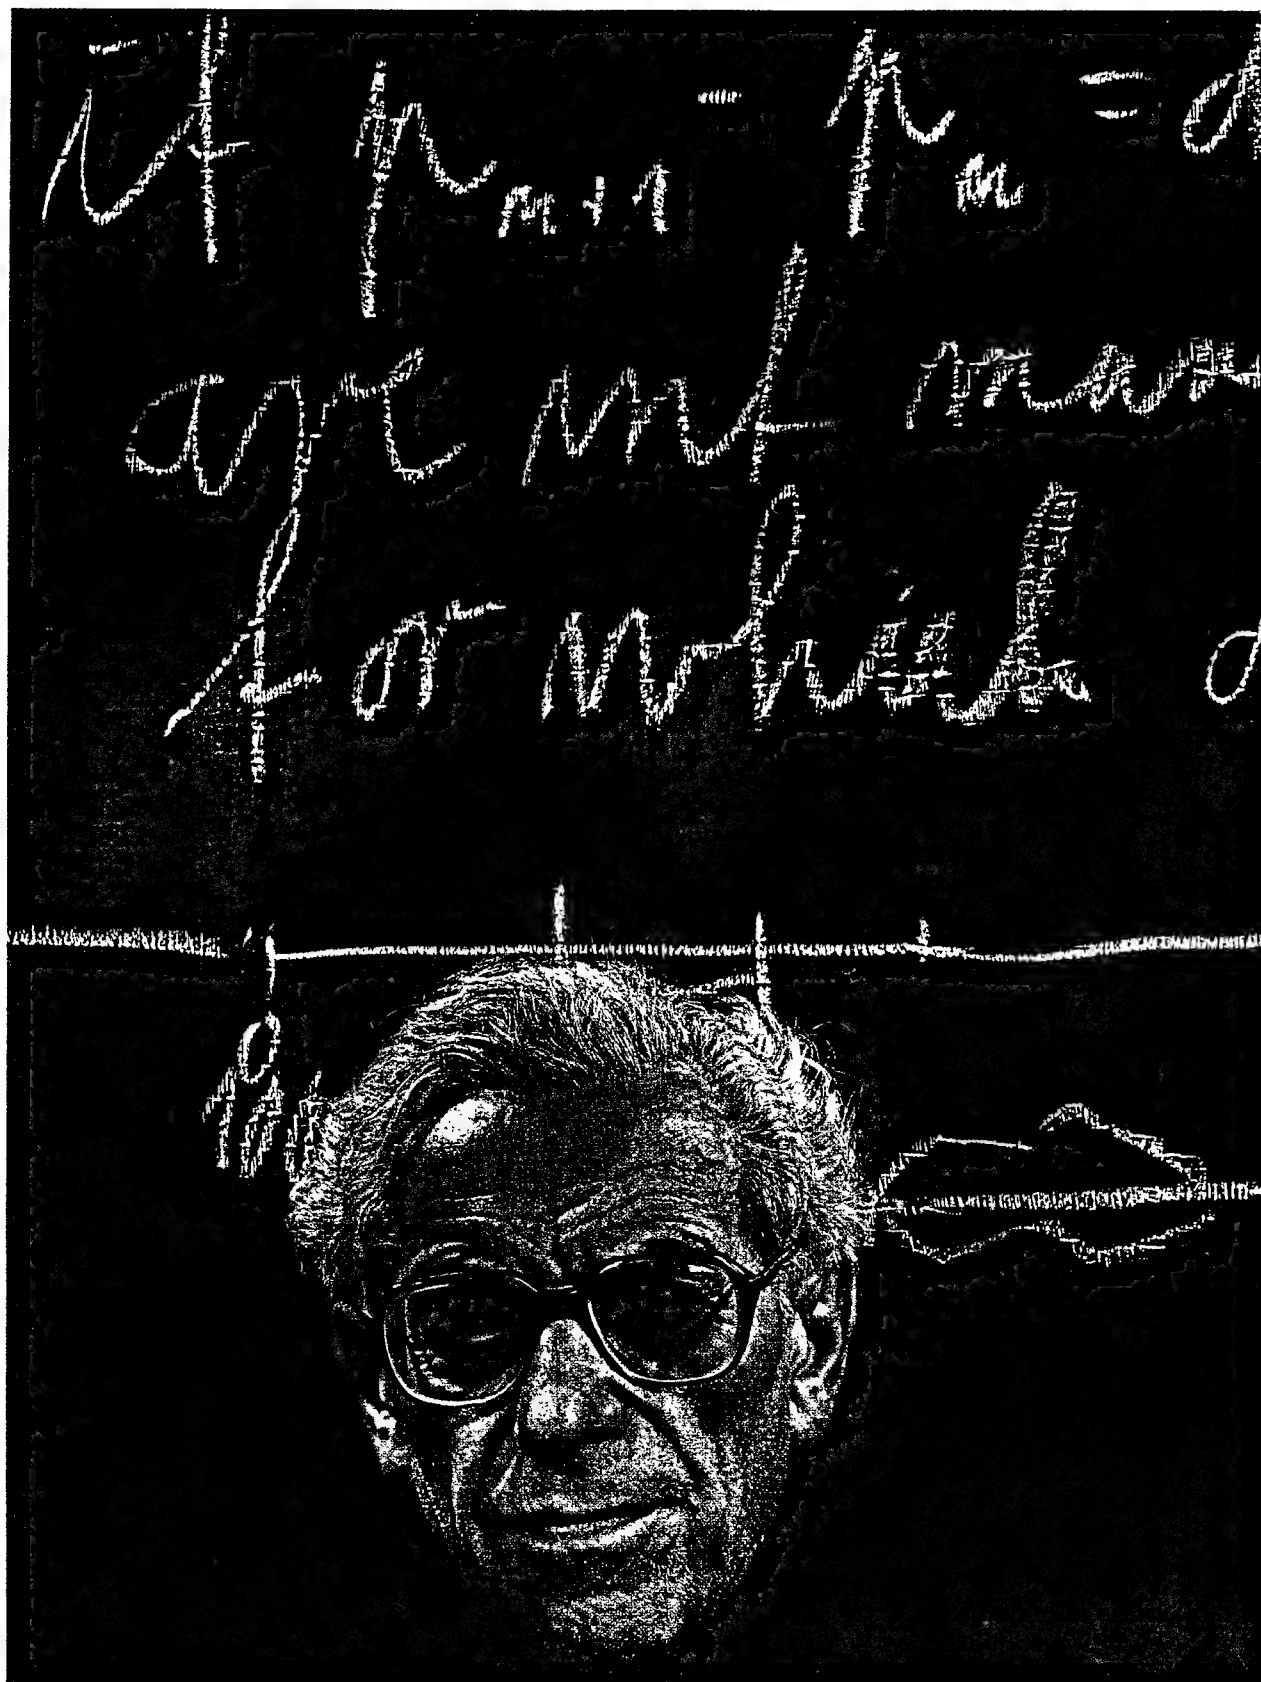 it p_{n+1} - p_n = d
are inf man
for which a
0